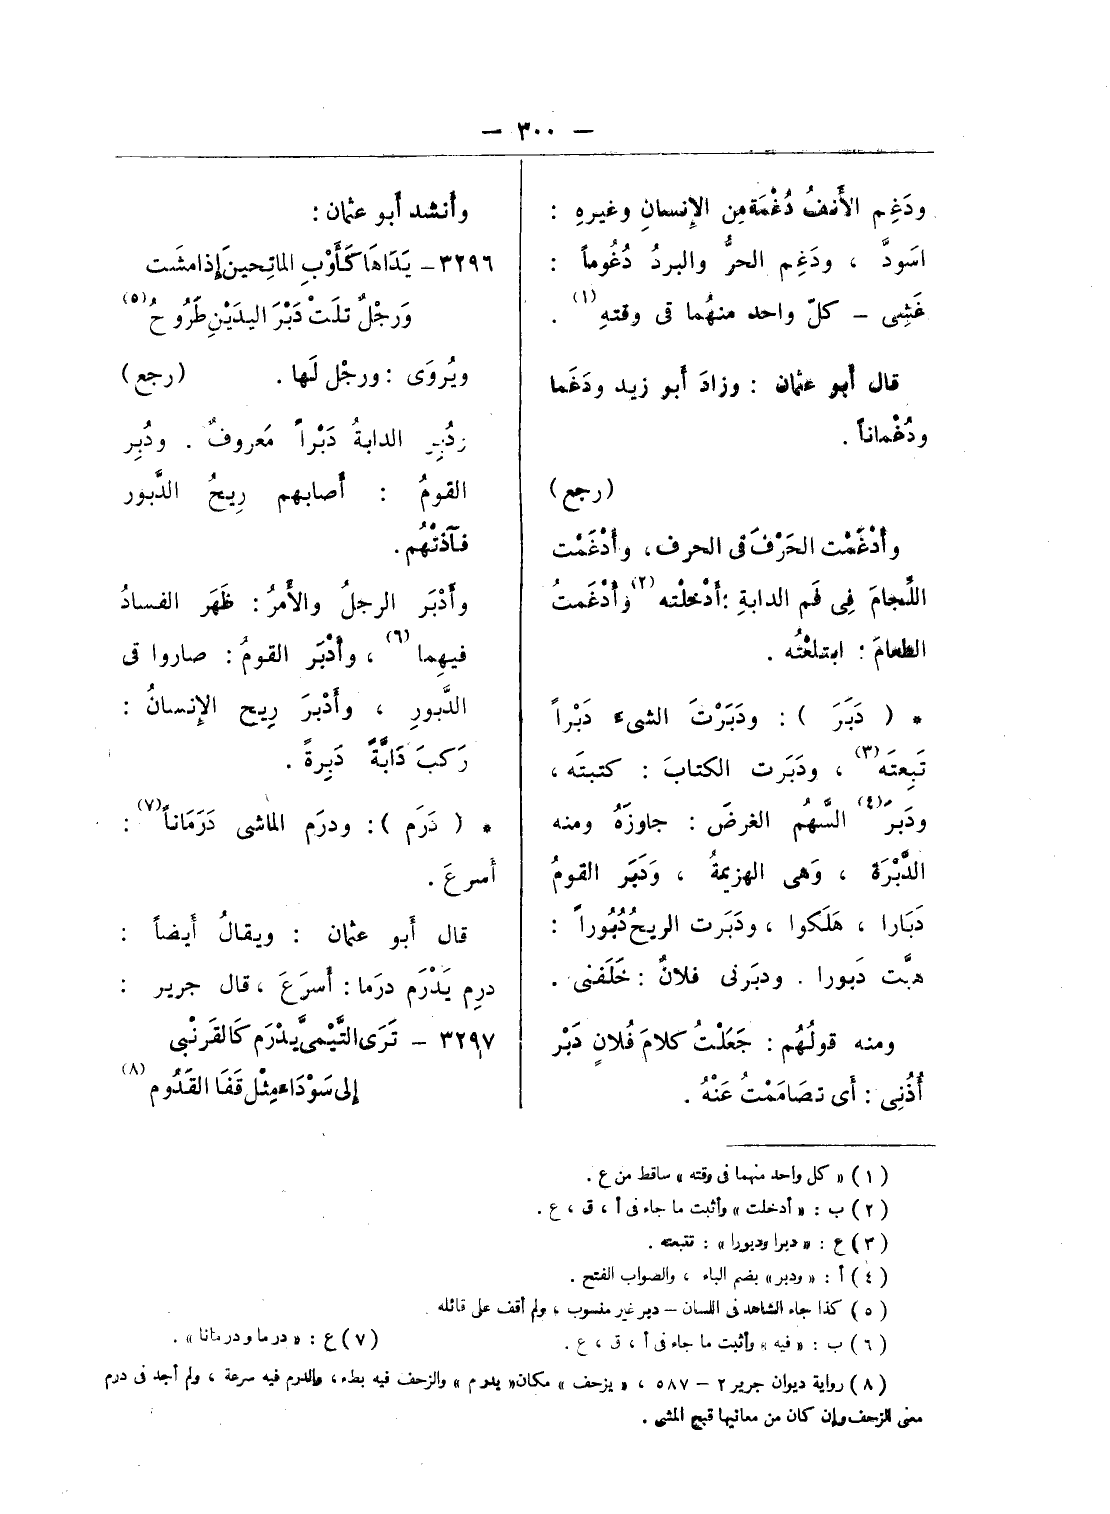 — ٣٠٠ —
ودَغِم الأَنفُ دُغْمَة مِن الإِنسانِ وغيرهِ :
اسَودَّ ، ودَغِم الحرُّ والبردُ دُغُوماً :
غَشِى – كلّ واحد منهُما فى وقتهِ (١) .
قال أبو عثمان : وزادَ أبو زيد ودَغَما
ودُغْماناً .
(رجع)
وأَدْغَمْت الحَرْفَ فى الحرف ، وأَدْغَمْت
اللِّجامَ فِى فَم الدابةِ : أَدْخلْته (٢) وأَدْغَمتُ
الطعامَ : ابتلعْتُه .
* ( دَبَرَ ) : ودَبَرْتَ الشىء دَبْراً
تَبِعتَه (٣) ، ودَبَرت الكتابَ : كتبتَه ،
ودَبَرَ (٤) السَّهُم الغرضَ : جاوزَهُ ومنه
الدَّبْرَة ، وَهى الهزيمةُ ، وَدَبَر القومُ
دَبَارا ، هَلَكوا ، ودبَرت الريحُ دُبُوراً :
هبَّت دَبورا . ودبَرنى فلانٌ : خَلَفنى .
ومنه قولُهُم : جَعَلْتُ كلامَ فُلانٍ دَبْر
أُذُنِى : أَى تصَامَمْتُ عَنْهُ .
وأنشد أبو عثمان :
٣٢٩٦ – يَدَاهَا كَأَوْبِ الماتِحينَ إذا مشَت
وَرجْلٌ تلَتْ دَبْرَ اليدَيْنِ طَرُوحُ (٥)
ويُروَى : ورجْل لَها . (رجع)
ودُبِر الدابةُ دَبْراً مَعروفٌ . ودُبِر
القومُ : أصابهم رِيحُ الدَّبور
فآذتْهُم .
وأَدْبَر الرجلُ والأَمرُ : ظَهَر الفسادُ
فيهِما (٦) ، وأَدْبَر القومُ : صاروا فى
الدَّبورِ ، وأَدْبرَ رِيح الإِنسانُ :
رَكبَ دَابَّةً دَبِرةً .
* ( دَرَم ) : ودرَم الماشى دَرَمَاناً (٧) :
أَسرعَ .
قال أَبو عثمان : ويقالُ أَيضاً :
درِم يَدْرَم درَما : أَسرَعَ ، قال جرير :
٣٢٩٧ – تَرَى التَّيْمىَّ يدْرَم كَالقَرنْبى
إلى سَوْدَاء مِثْل قَفَا القَدُوم (٨)
(١) « كل واحد منهما فى وقته » ساقط من ع .
(٢) ب : « أدخلت » وأثبت ما جاء فى أ ، ق ، ع .
(٣) ع : « دبرا ودبورا » : تتبعته .
(٤) أ : « ودبر » بضم الباء ، والصواب الفتح .
(٥) كذا جاء الشاهد فى اللسان – دبر غير منسوب ، ولم أقف على قائله .
(٦) ب : « فيه » وأثبت ما جاء فى أ ، ق ، ع . (٧) ع : « درما ودرمانا » .
(٨) رواية ديوان جرير ٢ – ٥٨٧ ، « يزحف » مكان « يدرم » والزحف فيه بطء ، والدرم فيه سرعة ، ولم أجد فى درم
معنى الزحف وإن كان من معانيها قبح المشى .